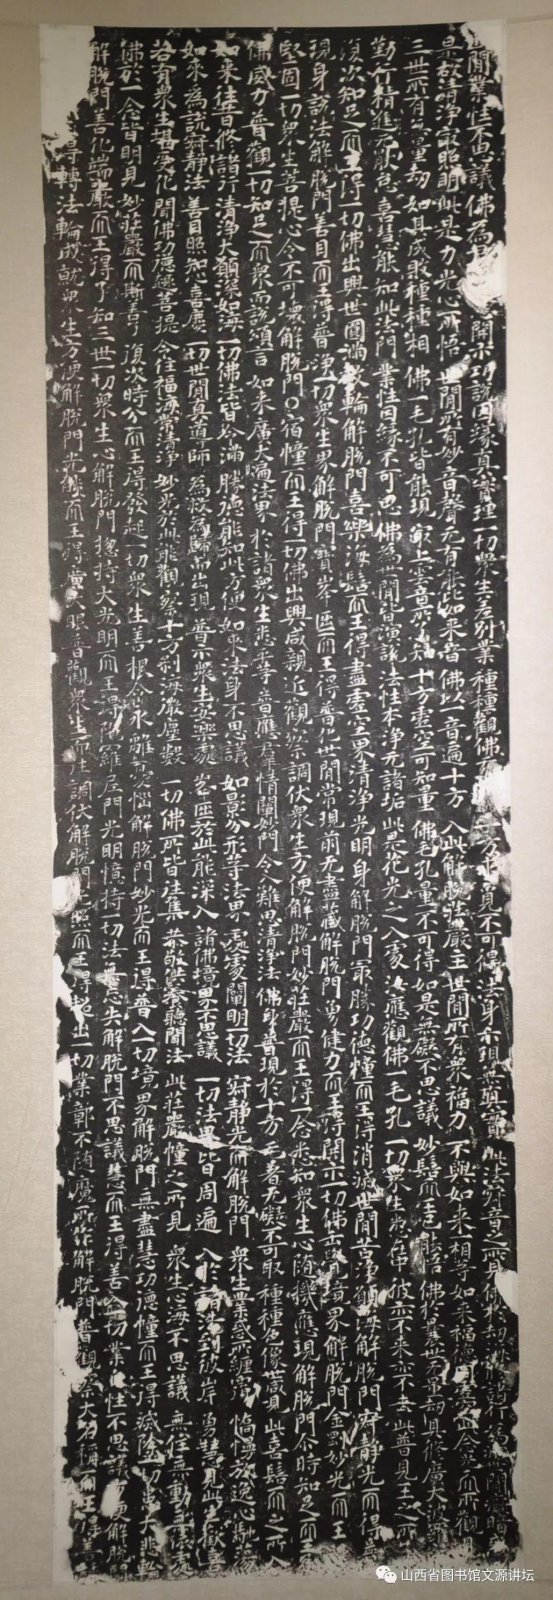 間業性不思議 佛為 開示巧說因緣真實理 一切衆生差別業 種種觀佛 十方求覓不可得 法身示現無真實 此法寂音之所見 佛於劫 修諸行 為滅世間癡闇
是故清淨最照明 此是力光心所悟 世間所有妙音聲 无有能比如來音 佛以一音遍十方 入此解脫莊嚴主 世間所有衆福力 不與如來一相等 如來福德同虛空 此念光天所觀見
三世所有无量劫 如其成敗種種相 佛一毛孔皆能現 最上雲音所了知 十方虛空可知量 佛毛孔量不可得 如是無礙不思議 妙髻天王已能悟 佛於曩世无量劫 具修廣大波羅
勤行精進无厭怠 喜慧能知此法門 業性因緣不可思 佛為世間皆演說 法性本淨无諸垢 此是花光之入處 汝應觀佛一毛孔 一切衆生悉在中 彼亦不來亦不去 此普見王之所
復次知足天王得一切佛出興世圓滿教輪解脫門 喜樂海髻天王得盡虛空界清淨光明身解脫門 最勝功德幢天王得消滅世間苦淨願海解脫門 寂靜光天王得普
現身說法解脫門 善目天王得普淨一切衆生界解脫門 寶峯月天王得普化世間常現前无盡藏解脫門 勇健力天王得開示一切佛正覺境界解脫門 金剛妙光天王
堅固一切衆生菩提心令不可壞解脫門 星宿幢天王得一切佛出興咸親近觀察調伏衆生方便解脫門 妙莊嚴天王得一念悉知衆生心隨機應現解脫門 尒時知足天王
佛威力普觀一切知足天衆而說頌言 如來廣大遍法界 於諸衆生悉平等 普應羣情闡妙門 令入難思清淨法 佛身普現於十方 无著无礙不可取 種種色像世咸見 此喜髻天之所入
如來往昔修諸行 清淨大願深如海 一切佛法皆令滿 勝德能知此方便 如來法身不思議 如影分形等法界 處處闡明一切法 寂靜光天解脫門 衆生業惑所纏覆 憍慢放逸心馳蕩
如來為說寂靜法 善目照知心喜慶 一切世間真導師 為救為歸而出現 普示衆生安樂處 峯月於此能深入 諸佛境界不思議 一切法界皆周遍 入於諸法到彼岸 勇慧見此生歡喜
若有衆生堪受化 聞佛功德趣菩提 令住福海常清淨 妙光於此能觀察 十方刹海微塵數 一切佛所皆往集 恭敬供養聽聞法 此莊嚴幢之所見 衆生心海不思議 無住無動無依處
佛於一念皆明見 妙莊嚴天斯善了 復次時分天王得發起一切衆生善根令永離憂惱解脫門 妙光天王得普入一切境界解脫門 無盡慧功德幢天王得滅除一切患大悲輪
解脫門 善化端嚴天王得了知三世一切衆生心解脫門 總持大光明天王得陁羅尼門光明憶持一切法無忘失解脫門 不思議慧天王得善入一切業自性不思議方便解脫
得轉法輪成就衆生方便解脫門 光焰天王得廣大眼普觀衆生而往調伏解脫門 光照天王得超出一切業鄣不隨魔所作解脫門 普觀察大名稱天王得善
山西省图书馆文源讲坛